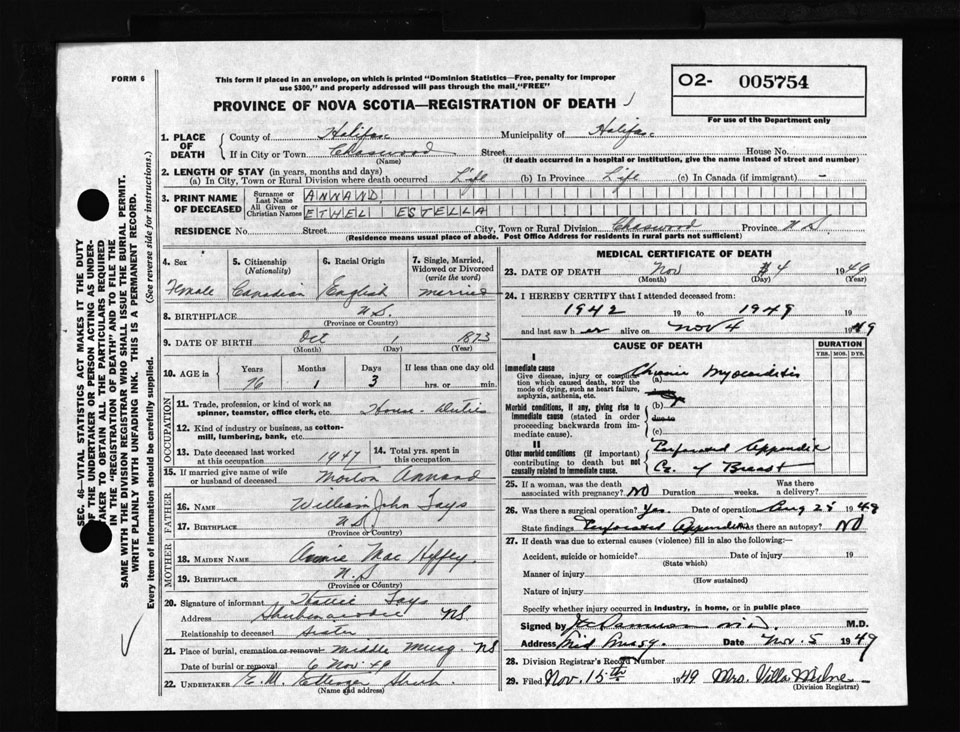 FORM 6
This form if placed in an envelope, on which is printed "Dominion Statistics—Free, penalty for improper
use $300," and properly addressed will pass through the mail, "FREE"
O2- 005754
For use of the Department only
PROVINCE OF NOVA SCOTIA—REGISTRATION OF DEATH
1. PLACE OF DEATH
County of Halifax Municipality of Halifax
If in City or Town Chaswood Street House No.
(Name) (If death occurred in a hospital or institution, give the name instead of street and number)
2. LENGTH OF STAY (in years, months and days)
(a) In City, Town or Rural Division where death occurred Life (b) In Province Life (c) In Canada (if immigrant) —
3. PRINT NAME OF DECEASED
Surname or Last Name ANNAND
All Given or Christian Names ETHEL ESTELLA
RESIDENCE No. Street City, Town or Rural Division Chaswood Province N S
(Residence means usual place of abode. Post Office Address for residents in rural parts not sufficient)
4. Sex Female
5. Citizenship (Nationality) Canadian
6. Racial Origin English
7. Single, Married, Widowed or Divorced (write the word) married
8. BIRTHPLACE N.S.
(Province or Country)
9. DATE OF BIRTH Oct 1 1873
(Month) (Day) (Year)
10. AGE in Years Months Days If less than one day
76 1 3 hrs. or min.
OCCUPATION
11. Trade, profession, or kind of work as spinner, teamster, office clerk, etc. House-Duties
12. Kind of industry or business, as cotton-mill, lumbering, bank, etc.
13. Date deceased last worked at this occupation 1947
14. Total yrs. spent in this occupation
15. If married give name of wife or husband of deceased Morton Annand
FATHER
16. NAME William John Fays
17. BIRTHPLACE N S
(Province or Country)
MOTHER
18. MAIDEN NAME Annie Mac
19. BIRTHPLACE N.S
(Province or Country)
20. Signature of informant Hattie Fays
Address Shubenacadie NS
Relationship to deceased Sister
21. Place of burial, cremation or removal Middle Musq. NS
Date of burial or removal 6 Nov '49
22. UNDERTAKER E. M. Ettinger Shub.
(Name and address)
MEDICAL CERTIFICATE OF DEATH
23. DATE OF DEATH Nov 4 1949
(Month) (Day) (Year)
24. I HEREBY CERTIFY that I attended deceased from:
1942 19 to 1949 19
and last saw h er alive on Nov 4 1949
CAUSE OF DEATH
DURATION
YRS. MOS. DYS.
I
Immediate cause
Give disease, injury or complication which caused death, NOT the mode of dying, such as heart failure, asphyxia, asthenia, etc.
(a) Chronic Myocarditis
due to
Morbid conditions, if any, giving rise to immediate cause (stated in order proceeding backwards from immediate cause).
(b)
due to
(c)
II
Other morbid conditions (if important) contributing to death but not causally related to immediate cause.
Perforated Appendix
Ca. of Breast
25. If a woman, was the death associated with pregnancy? NO Duration weeks. Was there a delivery?
26. Was there a surgical operation? Yes. Date of operation Aug 28 1948
State findings Perforated Appendix Was there an autopsy? NO
27. If death was due to external causes (violence) fill in also the following:—
Accident, suicide or homicide? Date of injury 19
(State which)
Manner of injury
(How sustained)
Nature of injury
Specify whether injury occurred in industry, in home, or in public place
Signed by M.D. M.D.
Address Mid Musq. Date Nov. 5 1949
28. Division Registrar's Record Number
29. Filed Nov. 15th 1949 Mrs. Villa Milne
(Division Registrar)
SEC. 46—VITAL STATISTICS ACT MAKES IT THE DUTY
OF THE UNDERTAKER OR PERSON ACTING AS UNDER-
TAKER TO OBTAIN ALL THE PARTICULARS REQUIRED
IN THE "REGISTRATION OF DEATH" AND TO FILE THE
SAME WITH THE DIVISION REGISTRAR WHO SHALL ISSUE THE BURIAL PERMIT.
WRITE PLAINLY WITH UNFADING INK. THIS IS A PERMANENT RECORD.
Every item of information should be carefully supplied. (See reverse side for instructions.)